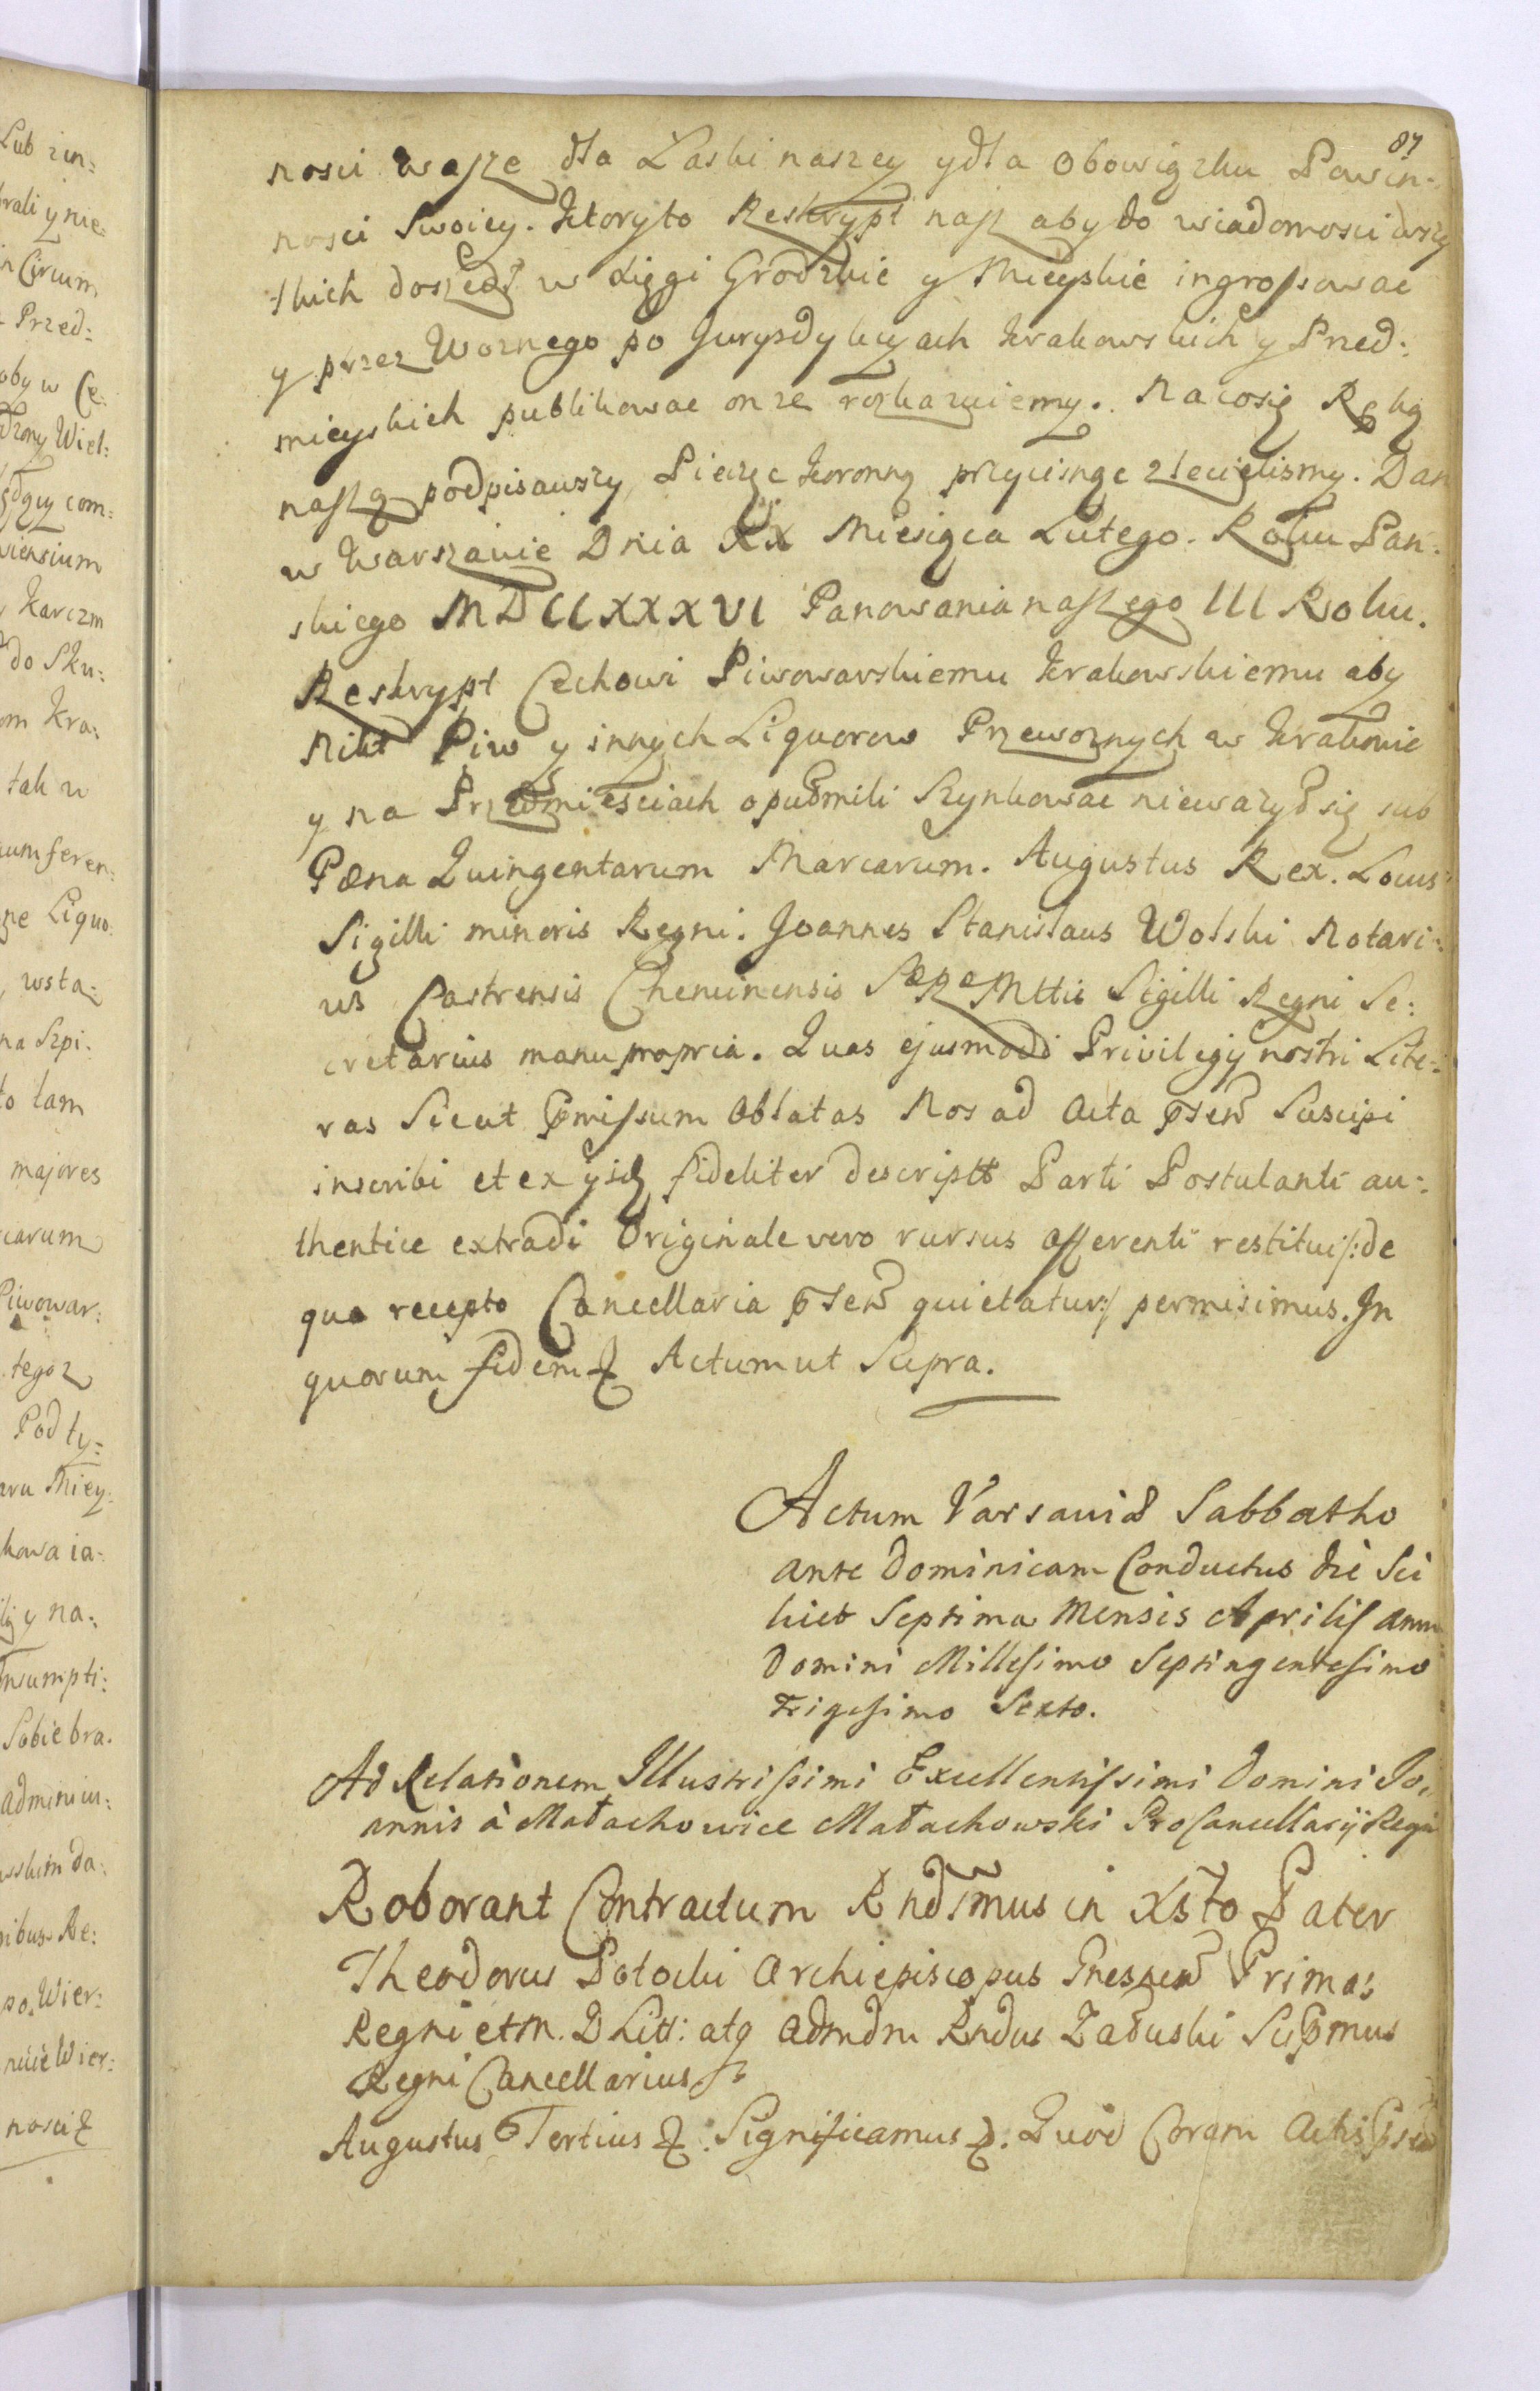 87
nosci wasze dla Łaski naszey y dla Obowiązku Powin-
nosci Swoiey. Ktoryto Reskrypt nasz aby do wiadomosci wszy
stkich doszedł w Xięgi Grodzkie y Mieyskie ingrossowac
y przez Woznego po Jurysdykcyach Krakowskich y Przed:
mieyskich publikowac onze rozkazuiemy. Na co się Ręką
naszą podpisawszy, Pieczęc Koronną przycisnąc zlecielismy. Dan
w Warszawie Dnia XX Miesiąca Lutego. Roku Pan:
skiego MDCCXXXVI Panowania naszego III Roku.
Reskrypt Cechowi Piwowarskiemu Krakowskiemu aby
Nikt Piw y innych Liquorow Przewoznych w Krakowie
y na Przedmiesciach o pułmili Szynkowac niewazył się sub
Pæna Quingentarum Marcarum. Augustus Rex. Locus
Sigilli minoris Regni. Joannes Stanislaus Wolski Notari:
us Castrensis Chencinensis SæRæMttis Sigilli Regni Se:
cretarius manu propria. Quas ejusmodi Privilegij nostri Lite:
ras Sicut Pmissum Oblatas Nos ad Acta psen Suscipi
inscribi et ex ijsq fideliter descriptt Parti Postulanti au:
thentice extradi Originale vero rursus Offerenti restitui /:de
quo recepto Cancellaria psen quietatur:/ permisimus. In
quorum fidem & Actum ut Supra.
Actum Varsaviæ Sabbatho
ante Dominicam Conductus die Sci
licet Septima Mensis Aprilis Anno
Domini Millesimo Septingentesimo
Trigesimo Sexto.
Ad Relationem Illustrissimi Excellentissimi Domini Jo:
annis à Małachowice Małachowski ProCancellarij Regni
Roborant Contractum Rndsmus in Xsto Pater
Theodorus Potocki Archiepiscopus Gnesnen Primas
Regni et M. D Litt: atq Admdm Rndus Załuski Supmus
Regni Cancellarius
Augustus Tertius &. Significamus &. Quod Coram Actis Psen